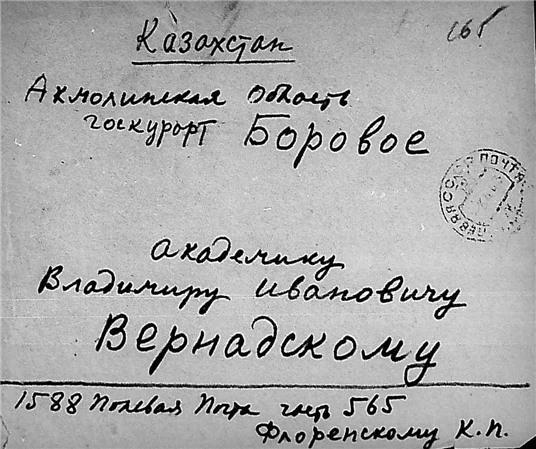 165
Казахстан
Акмолинская область
госкурорт Боровое
СССР ПОЧТА
ПОЛЕВАЯ
академику
Владимиру Ивановичу
Вернадскому
1588 Полевая Почта часть 565
Флоренскому К.П.